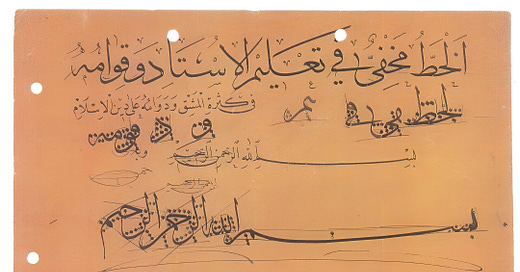 الخَطُّ مَخْفِيٌّ في تَعْليمِ الاُسْتَاذِ وَقِوَامُهُ
في كَثْرَةِ المَشْقِ وَدَوَامُهُ عَلَى دِينِ الإِسْلَامِ
الخط مخفي في
بسم الله الرحمن الرحيم
بسم الله الرحمن الرحيم